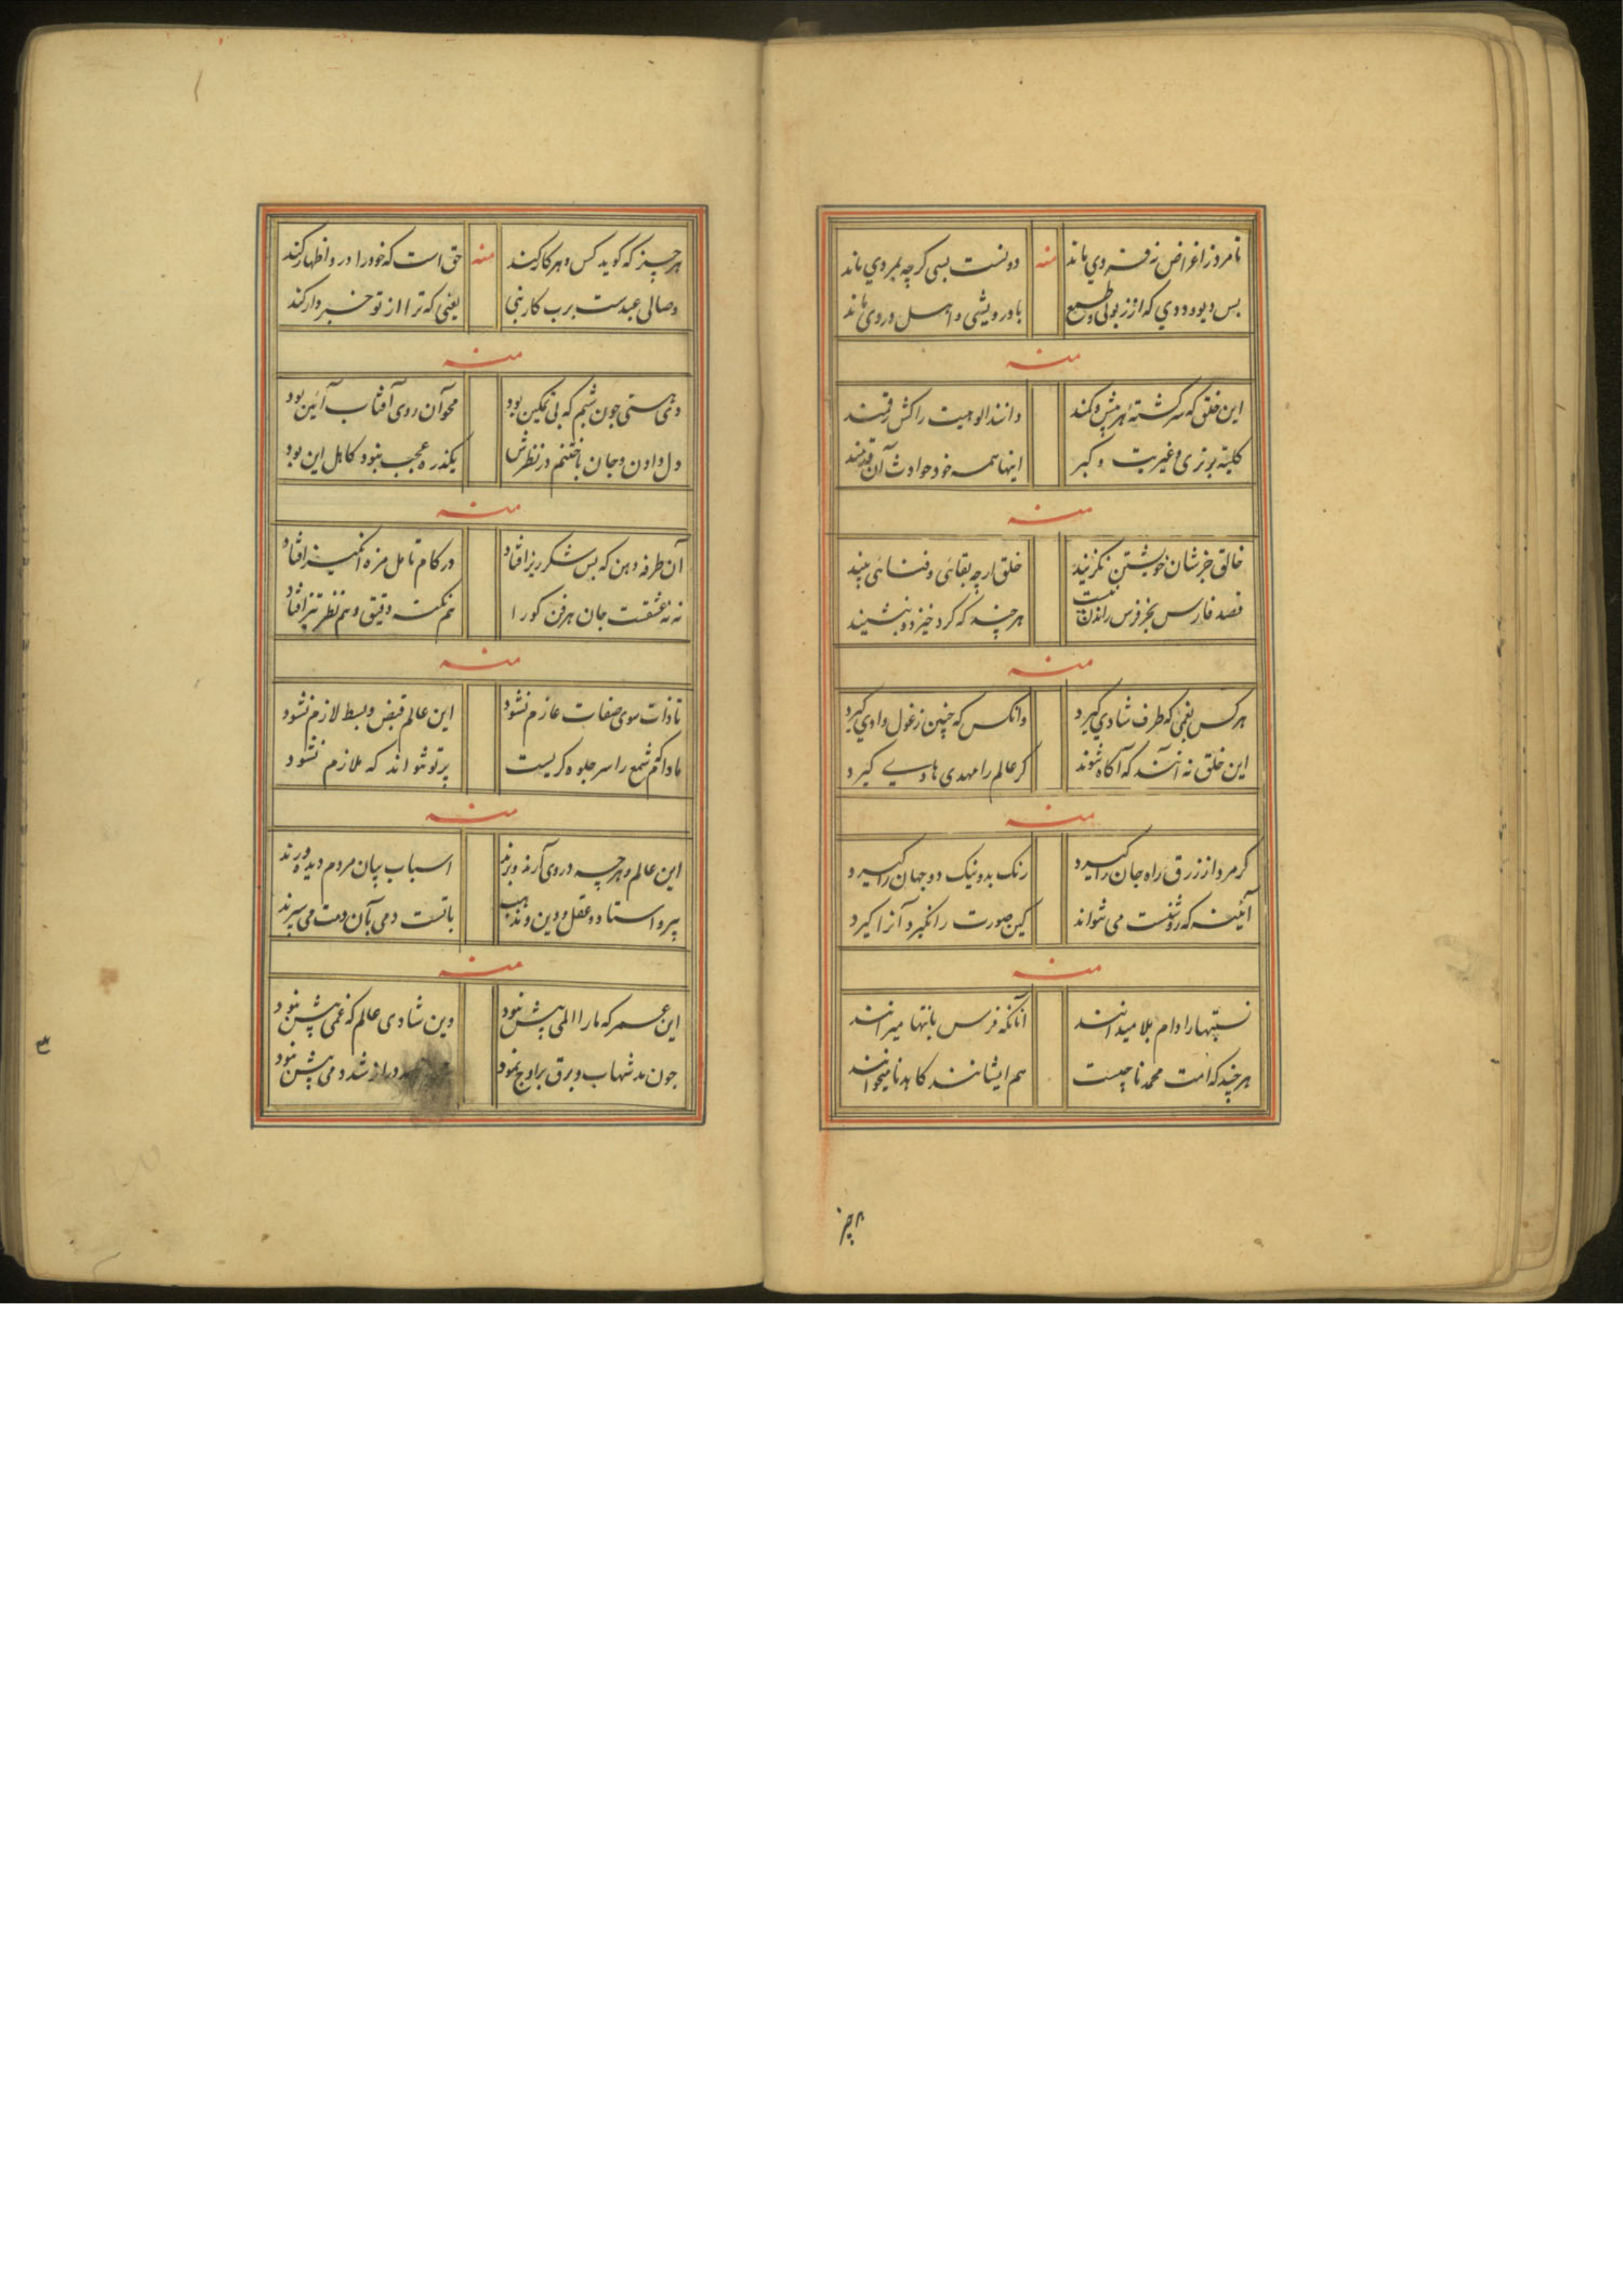 نا مرد ز اغراض نه فردي ماند منه دونست بسی کرچه بمردي ماند
بس دیو و ددي که از زبونی و طمع با درویشی و اهل دردی ماند
منه
این خلق که سرکشته هر بیش و کمند دانند الوهیت را کش رقمند
کلیته برتری و غیریت و کبر اینها همه خود حوادث آن قدمند
منه
خالق جز شان خویشتن نکزیند خلق ارچه بقائی و فنائی بیند
قصد فارس بجز فرس راندن نیست هرچند که کرد خیزد و بنشیند
منه
هر کس بغمی که طرف شادي کیرد وانکس که چنین ز غول وادي کیرد
این خلق نه آنند که آکاه شوند کر عالم را مهدی هادیے کیرد
منه
کر مرد از زرق راه جان را کیرد رنک بد و نیک دو جهان را کیرد
آئینه که روشنست می نتواند کین صورت را نکیرد آنرا کیرد
منه
نسبتها را دام بلا میدانند آنانکه فرس بانتها میرانند
هرچند که امت محمد ناجیست هم ایشانند کابدنا میخوانند
هر چیز
هر چیز که کوید کس و هر کار کند منه حق است که خود را در و اظهار کند
وصالی عبدست برب کار نبی یعنی که ترا از تو خبردار کند
منه
دی هستی جون شبم که بی تمکین بود محو آن روی آفتاب آئین بود
دل دادن و جان باختنم در نظرش یکذره عجب نبود کاهل این بود
منه
آن طرفه دهن که بس شکرریز افتاد در کام تامل مزه انکیز افتاد
نه نه غلطست جان هر فن کو را هم نکته دقیق و هم نظر تیز افتاد
منه
تا ذات سوی صفات عازم نشود این عالم قبض و بسط لازم نشود
مادام که شمع را سر جلوه کریست پرتو نتواند که ملازم نشود
منه
این عالم و هرچه در وی آرند و برند اسباب بیان مردم دیده ورند
پیر و استاد و عقل و دین و مذهب با تست دمی بآن دمت می سپرند
منه
این عمر که ما را المی بیش نبود وین شادی عالم که غمی بیش نبود
جون مد شهاب و برق بر اوج نمود دراز شد دمی بیش نبود